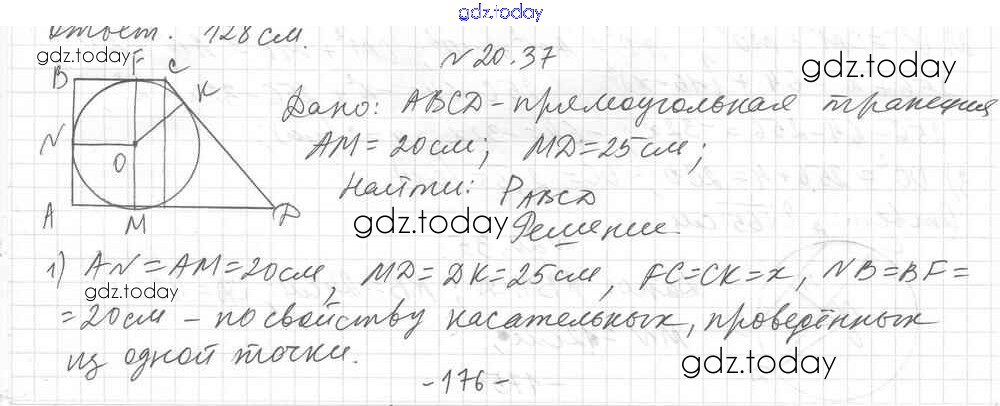 gdz.today
Ответ. 128 см.
gdz.today
№ 20.37
gdz.today
B F C K
N O
A M D
Дано: ABCD - прямоугольная трапеция
AM = 20 см; MD = 25 см;
Найти: P_ABCD
gdz.today
Решение.
1) AN = AM = 20 см, MD = DK = 25 см, FC = CK = x, NB = BF =
gdz.today
= 20 см - по свойству касательных, проведённых
из одной точки.
gdz.today
- 176 -